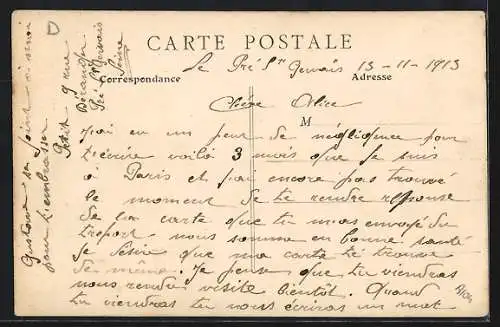 CARTE POSTALE
Correspondance
Adresse
Le Pré St Gervais 13-11-1913
Chère Alice
M
J'ai eu un peu de négligence pour
t'écrire voilà 3 mois que je suis
à Paris et j'ai encore pas trouvé
le moment de te rendre réponse
de la carte que tu m'as envoyé du
treport nous somme en bonne santé
je désire que ma carte te trouve
de même. Je pense que tu viendras
nous rendre visite bientôt. Quand
tu viendras tu nous écriras un mot
Gustave se joint à moi
pour t'embrasser
Petit 9 rue
Béranger
Pré St Gervais
Seine